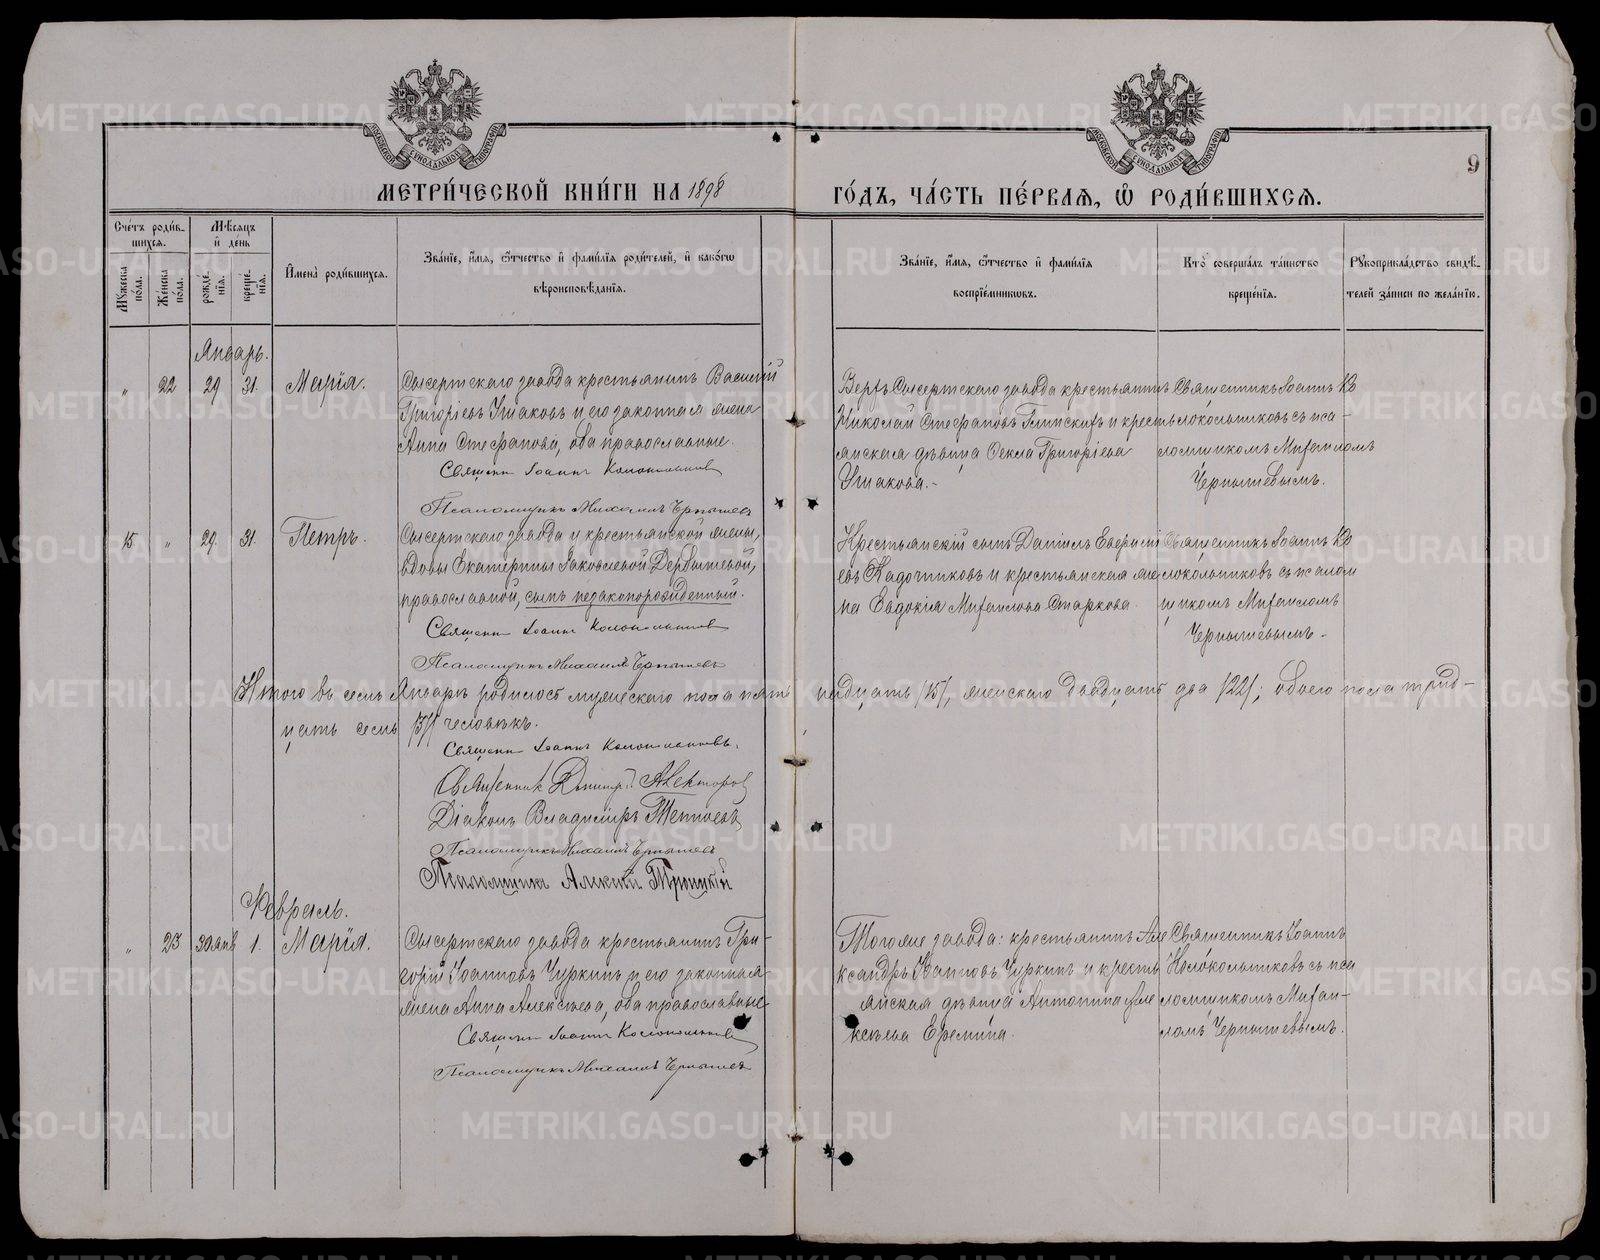 МОСКОВСКОЙ СѴНОДАЛЬНОЙ ТИПОГРАФІИ
МОСКОВСКОЙ СѴНОДАЛЬНОЙ ТИПОГРАФІИ
9
МЕТРИ́ЧЕСКОЙ КНИ́ГИ НА 1898
ГО́ДЪ, ЧА́СТЬ ПЕ́РВАЯ, Ѽ РОДИ́ВШИХСЯ.
Сче́тъ роди́в-
шихся.
Мѣ́сяцъ
и҆ де́нь
Мꙋ́жеска по́ла.
Же́нска по́ла.
рожде́-нїя.
креще́-нїя.
И҆мена̀ роди́вшихся.
Зва́нїе, и҆́мя, ѻ҆́тчество и҆ фами́лїя роди́телей, и҆ како́гѡ
вѣроисповѣ́данїя.
Зва́нїе, и҆́мя, ѻ҆́тчество и҆ фами́лїя
воспрїе́мникѡвъ.
Кто̀ соверша́лъ та́инство
креще́нїя.
Рꙋкоприкла́дство свидѣ́-
телей за́писи по жела́нїю.
Январь.
" 22 29 31. Марія.
Сысертскаго завода крестьянинъ Василій
Григоріевъ Ушаковъ и его законная жена
Анна Стефанова, оба православные.
Священ Іоаннъ Колокольниковъ
Псаломщикъ Михаилъ Чернышевъ
Верхъ Сысертскаго завода крестьянинъ
Николай Стефановъ Глинскихъ и кресть
янская дѣвица Фекла Григоріева
Ушакова.-
Священникъ Іоаннъ Ко
локольниковъ съ пса-
ломщикомъ Михаиломъ
Чернышевымъ.
15. " 29. 31. Петръ.
Сысертскаго завода у крестьянской жены,
вдовы Екатерины Яковлевой Дербышевой,
православной, сынъ незаконорожденный.
Священ Іоаннъ Колокольниковъ
Псаломщикъ Михаилъ Чернышевъ
Крестьянскій сынъ Даніилъ Евгеніи
евъ Кадочниковъ и крестьянская же
на Евдокія Михаилова Старкова.
Священникъ Іоаннъ Ко
локольниковъ съ псалом
щикомъ Михаиломъ
Чернышевымъ.
Итого въ семъ Январѣ родилось мужескаго пола пятнадцать /15/, женскаго двадцать два /22/; обоего пола трид-
цать семь /37/ человѣкъ.
Священ Іоаннъ Колокольниковъ.
Священникъ Димитр. Алекторовъ
Діаконъ Владиміръ Тепловъ
Псаломщикъ Михаилъ Чернышевъ
Псаломщикъ Алексій Троицкій
Февраль.
" 23 30 янв 1. Марія.
Сысертскаго завода крестьянинъ Гри-
горій Іоанновъ Чуркинъ и его законная
жена Анна Алексѣева, оба православные
Священ Іоаннъ Колокольниковъ
Псаломщикъ Михаилъ Чернышевъ
Тогоже завода: крестьянинъ Але
ксандръ Іоанновъ Чуркинъ и кресть
янская дѣвица Антонина Але
ксѣева Еремина.
Священникъ Іоаннъ
Колокольниковъ съ пса
ломщикомъ Михаи-
ломъ Чернышевымъ.
METRIKI.GASO-URAL.RU